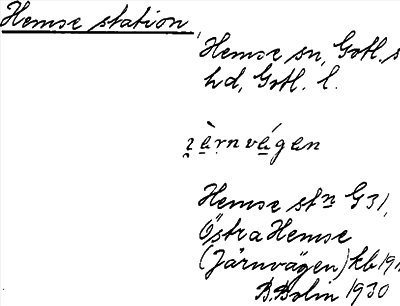 Hemse station,
Hemse sn, Gotl. s
hd, Gotl. l.
Hemse stn G 31,
Östra Hemse
(Järnvägen) kb 191
B. Bolin 1930